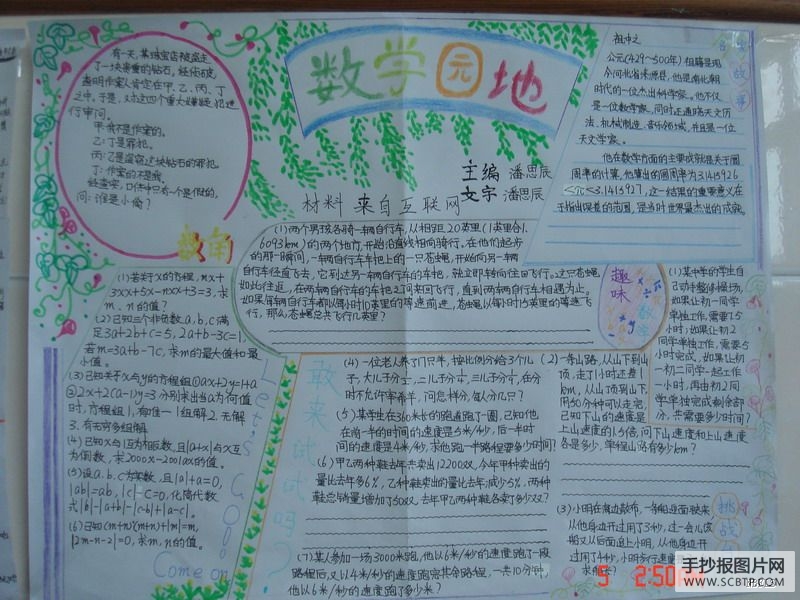 数学园地
主编 潘思辰
文字 潘思辰
材料 来自互联网
有一天,某珠宝店被盗走
了一块贵重的钻石,经侦破,
查明作案人肯定在甲、乙、丙、丁
之中。于是,对这四个重大嫌疑犯进
行审问。
甲:我不是作案的。
乙:丁是罪犯。
丙:乙是盗窃这块钻石的罪犯。
丁:作案的不是我。
经查实:四件中只有一个是假的,
问:谁是小偷?
祖冲之
公元(429~500年)祖籍是现
今河北省涞源县,他是南北朝
时代的一位杰出科学家。他不仅
是一位数学家,同时还通晓天文历
法、机械制造、音乐领域,并且是一位
天文学家。
他在数学方面的主要成就是关于圆
周率的计算,他算出的圆周率为3.1415926
<π<3.1415927,这一结果的重要意义在
于指出误差的范围,是当时世界最杰出的成就。
(1)两个男孩各骑一辆自行车,从相距20英里(1英里合1.
6093km)的两个地方,开始沿直线相向骑行。在他们起步
的那一瞬间,一辆自行车车把上的一只苍蝇,开始向另一辆
自行车径直飞去。它到达另一辆自行车车把,就立即转向往回飞行。这只苍蝇
如此往返,在两辆自行车的车把之间来回飞行,直到两辆自行车相遇为止。
如果每辆自行车都以每小时10英里的等速前进,苍蝇以每小时15英里的等速飞
行,那么,苍蝇总共飞行几英里?
趣味
数学
(1)若关于x的方程,mx+
3xxx+5x-nxx+3=3,求
m、n的值?
(2)已知三个非负数a,b,c满
足3a+2b+c=5,2a+b-3c=1,
若m=3a+b-7c,求m的最大值和最
小值。
(3)已知关于x与y的方程组①ax+2y=1+a
②2x+2(a-1)y=3分别求出当a为何值
时,方程组1.有唯一1组解2.无解
3.有无穷多组解
(4)已知x与1互为相反数,且|a+x|与x互
为倒数,求2000x-2001ax的值。
(5)设a、b、c为实数,且|a|+a=0,
|ab|=ab,|c|-c=0,化简代数
式|b|-|a+b|-|c-b|+|a-c|。
|2m-n-2|=0,求m,n的值。
Let's Go!
Come on
敢来试试吗?
(4)一位老人养了17只羊,按比例分给3个儿
子,大儿子分½,二儿子分⅓,三儿子分⅑,在分
时不允许宰杀羊,问怎样分,每人分几只?
(5)某学生在360米长的跑道跑了一圈,已知他
在前一半的时间的速度是5米/秒,后一半时
间的速度是4米/秒,求他跑一半路程要多少时间?
(6)甲乙两种鞋去年共卖出12200双,今年甲种卖出的
量比去年多6%,乙种鞋卖出的量比去年减少5%,两种
鞋总销量增加了50双,去年甲乙两种鞋各卖了多少双?
(7)某人参加一场3000米跑,他以6米/秒的速度跑了一段
路程后,又以4米/秒的速度跑完其余路程,一共10分钟,
他以6米/秒的速度跑了多少米?
(1)某中学的学生自
己动手整修操场,
如果让初一同学
单独工作,需要7.5
小时;如果让初2
同学单独工作,需要5
小时完成。如果让初
一初二同学一起工作
一小时,再由初2同
学单独完成剩余部
分,共需要多少时间?
(2)一条山路,从山下到山
顶,走了1小时还差1
km,从山顶到山下,
用50分钟可以走完。
已知下山的速度是
上山速度的1.5倍,问下山速度和上山速度
各是多少,单程山路有多少km?
(3)小明在海边散布,一条船迎面驶来
挑战
5 2:50PM
手抄报图片网
WWW.SCBTP.COM